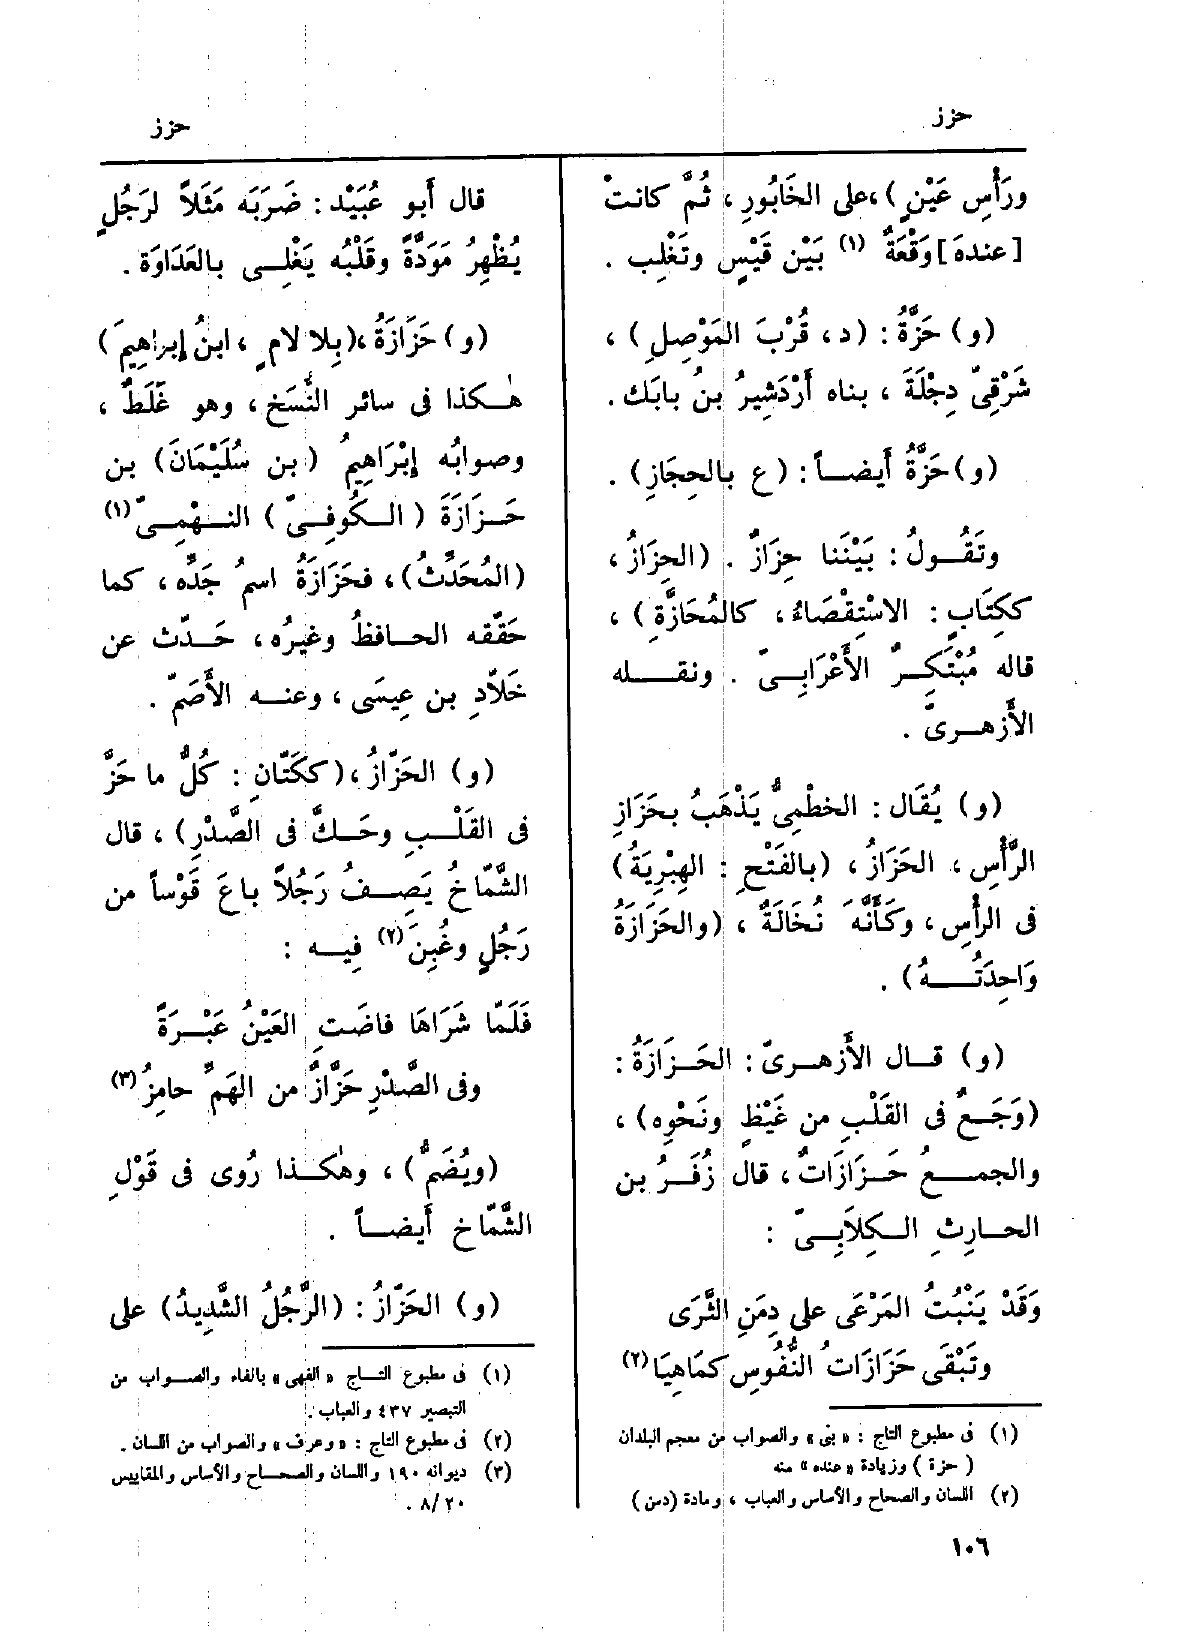 حزز
حزز
ورَأْسِ عَيْنٍ)،على الخَابُورِ، ثُمَّ كانتْ
[عندهَ] وَقْعَةٌ (١) بَيْن قَيْسٍ وتَغْلِب .
(و) حَزَّةُ : (د، قُرْبَ المَوْصِلِ) ،
شَرْقِىّ دِجْلَةَ ، بناه أَرْدَشِيرُ بنُ بابَك .
(و) حَزَّةُ أَيضـاً : (ع بالحِجَازِ) .
وتَقُـولُ : بَيْنَنا حِزَازٌ . (الحِزَازُ ،
ككِتَابٍ : الاسْتِقْصَاءُ ، كالمُحَازَّةِ) ،
قاله مُبْتَكِـرٌ الأَعْرَابِـىّ . ونقـلـه
الأَزهـرىّ .
(و) يُقَال : الخطْمِىُّ يَذْهَبُ بحَزَازِ
الرَّأْسِ ، الحَزَازُ ، (بالفَتْحِ : الهِبْرِيَةُ)
فى الرأْس ، وكَأَنَّهَ نُخَالَةٌ ، (والحَزَازَةُ
وَاحِدَتُـهُ) .
(و) قـال الأَزهـرىّ : الحَـزَازَةُ :
(وَجَـعٌ فى القَلْبِ من غَيْظٍ ونَحْوِه) ،
والجمـعُ حَـزَازَاتٌ ، قال زُفَـرُ بن
الحـارِثِ الـكِلاَبِـىّ :
وَقَدْ يَنْبُتُ المَرْعَى على دِمَنِ الثَّرَى
وتَبْقَى حَزَازَاتُ النُّفُوسِ كَمَاهِيَا (٢)
(١) فى مطبوع التاج : « بنى » والصواب من معجم البلدان
( حزة ) وزيادة « عنده » منه
(٢) اللسان والصحاح والأساس والعباب ، ومادة (دمن)
قال أَبو عُبَيْد : ضَرَبَه مَثَلاً لرَجُلٍ
يُظْهِرُ مَوَدَّةً وقَلْبُه يَغْلِـى بالعَدَاوَة .
(و) حَزَازَةُ ،(بِلا لامٍ ، ابنُ إِبراهِيمَ)
هٰـكذا فى سائر النُّسَخ ، وهو غَلَطٌ ،
وصوابُه إِبْرَاهِيمُ (بن سُلَيْمَانَ) بن
حَـزَازَةَ (الـكُوفِـىّ) النـهْمِـىّ (١)
(المُحَدِّثُ) ، فحَزَازَةُ اسمُ جَدِّه ، كما
حَقّقه الحـافظُ وغيرُه ، حَـدّث عن
خَلاّدِ بن عِيسَى ، وعنـه الأَصَمّ .
(و) الحَزّازُ ،(ككَتّانٍ : كُلُّ ما حَزَّ
فى القَلْـبِ وحَـكَّ فى الصَّدْرِ) ، قال
الشَّمّاخُ يَصِـفُ رَجُلاً باعَ قَوْساً من
رَجُلٍ وغُبِنَ (٢) فِيـه :
فَلَمّا شَرَاهَا فاضَتِ العَيْنُ عَبْـرَةً
وفى الصَّدْرِ حَزَّازٌ من الهَمِّ حامِزُ (٣)
(ويُضَمُّ) ، وهٰـكـذا رُوى فى قَوْلِ
الشَّمّاخِ أَيضـاً .
(و) الحَزّازُ : (الرَّجُلُ الشَّدِيدُ) على
(١) فى مطبوع التـاج « الفهى » بالفاء والصـواب من
التبصير ٤٣٧ والعباب .
(٢) فى مطبوع التاج : « وعرف » والصواب من اللسان .
(٣) ديوانه ١٩٠ واللسان والصحـاح والأساس والمقاييس
٢٠ / ٨ .
١٠٦